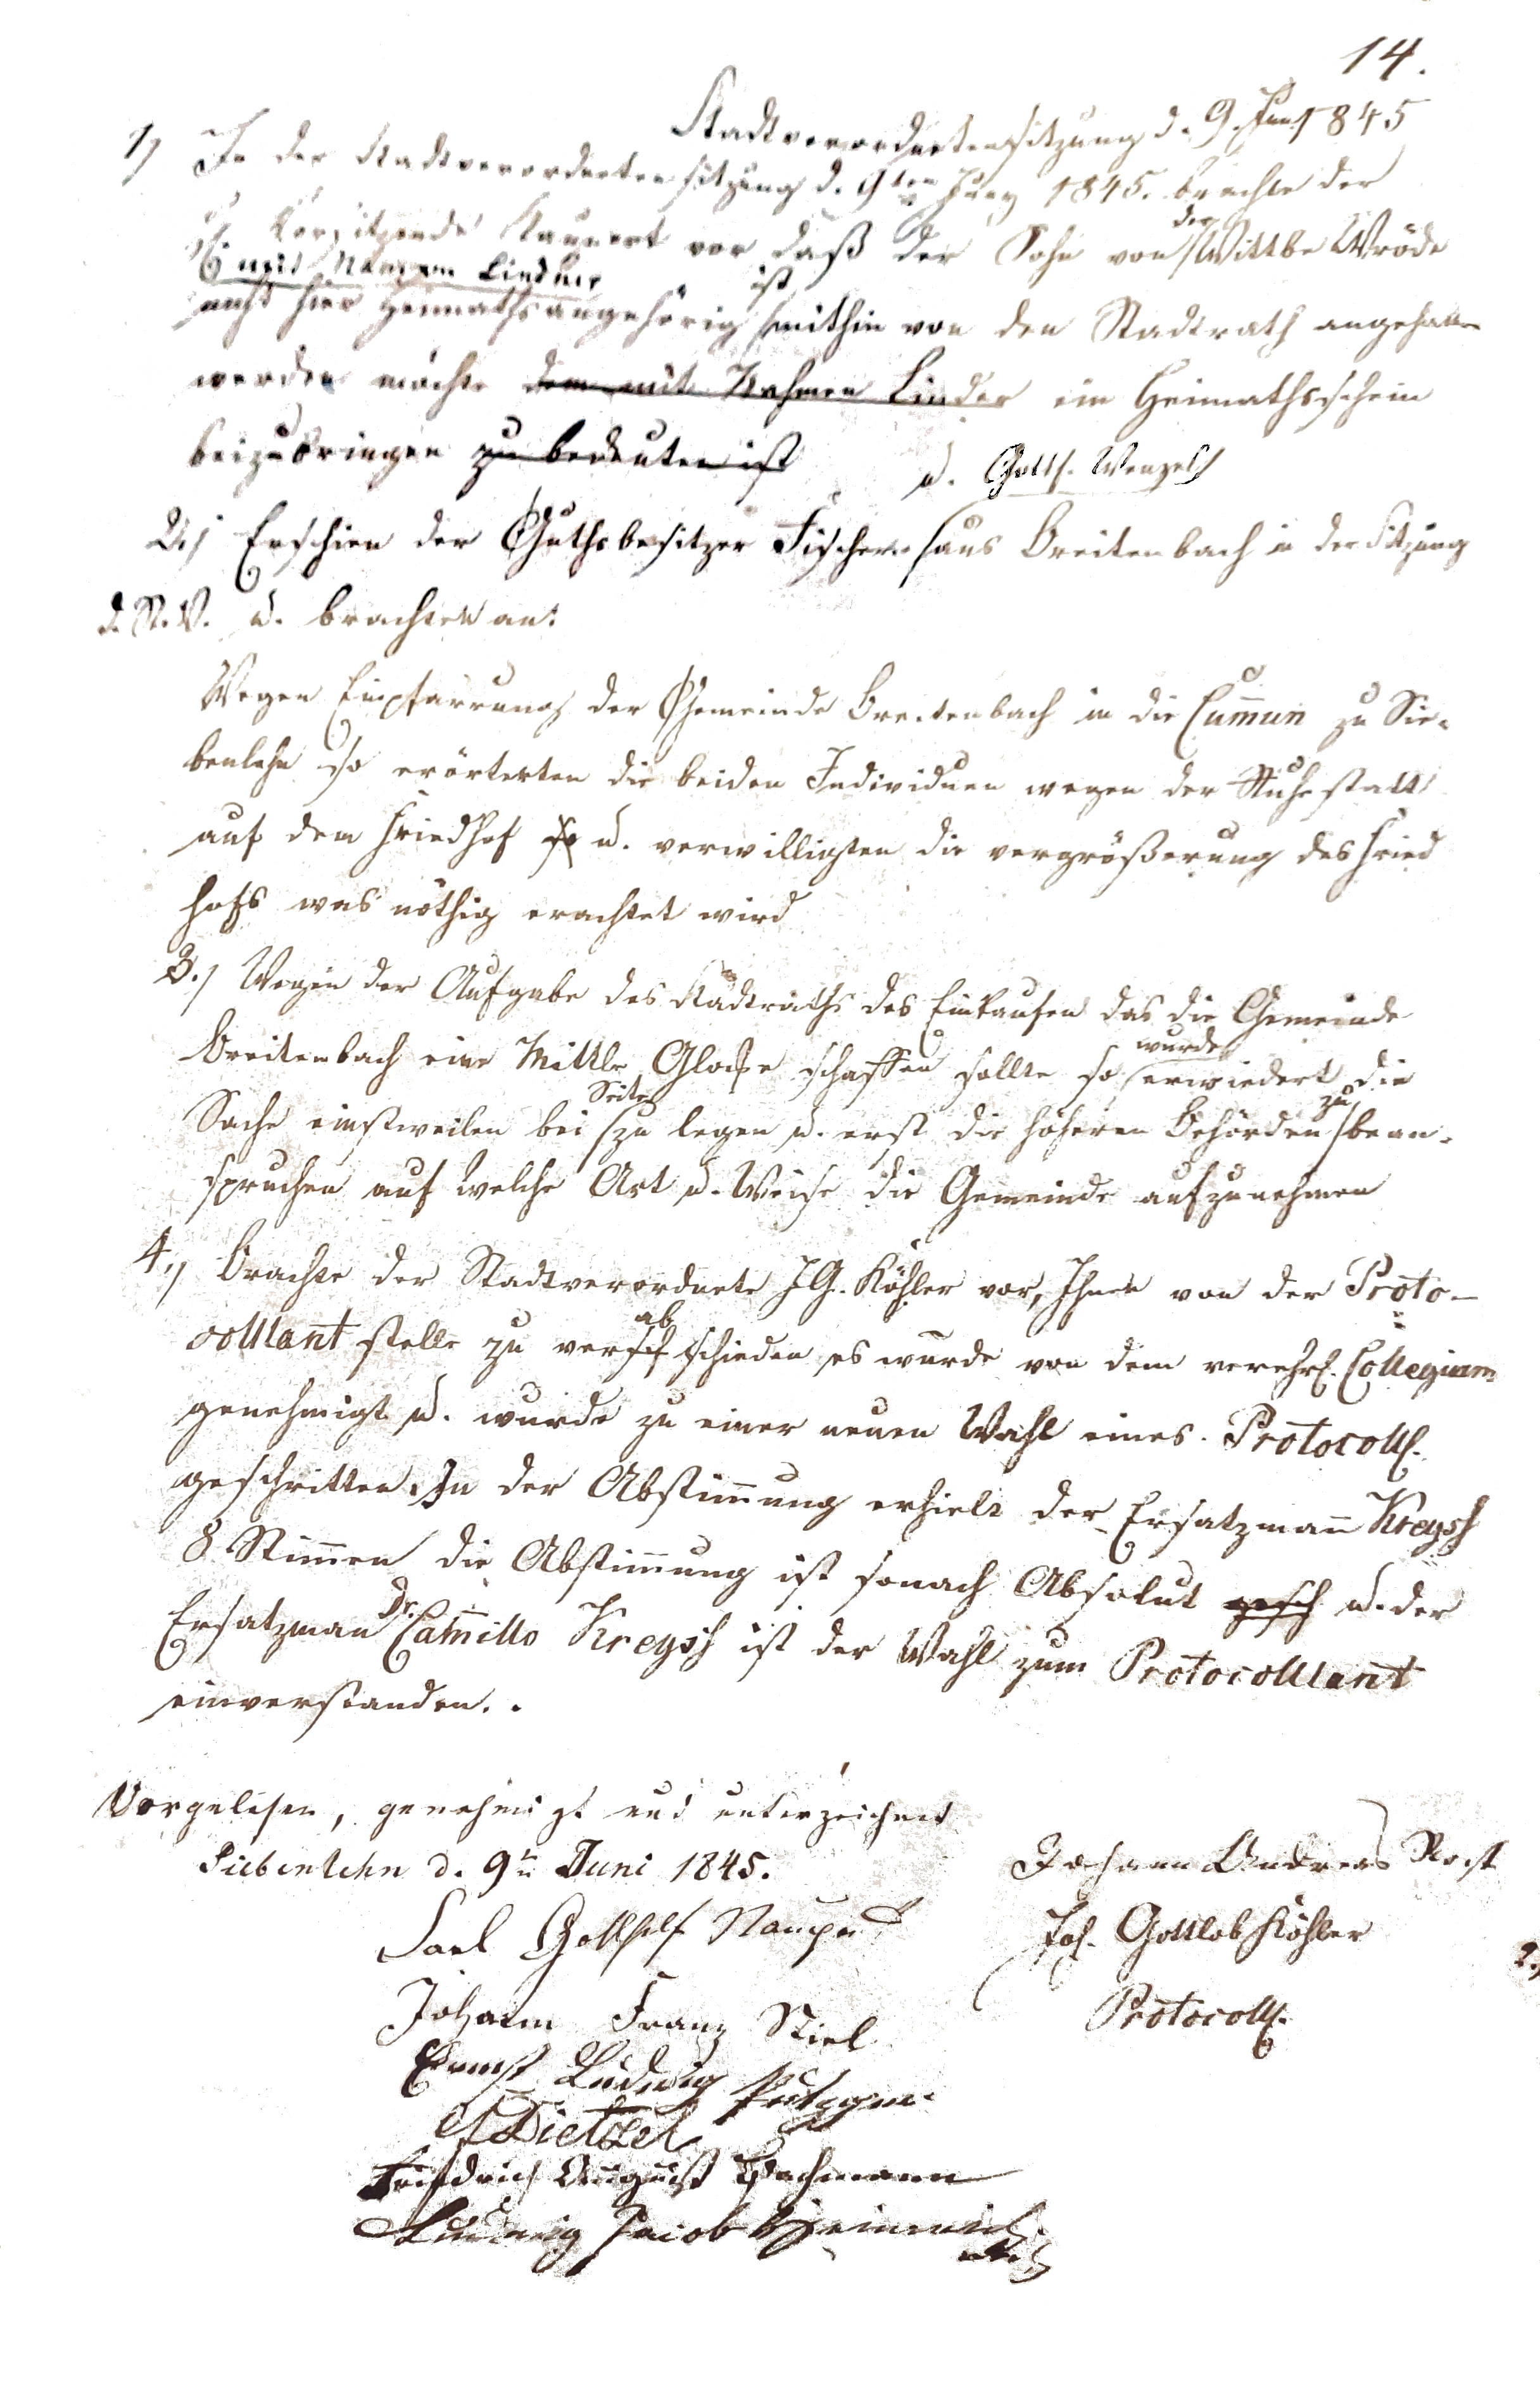 14.
Stadtverordnetensitzung d. 9. Juni 1845
1, In der Stadtverordneten sitzung d. 9ten Juny 1845. brachte der
Vorsitzende Naupert vor daß der Sohn von der Wittbe Wröde
mit Namen Lindner
nicht hier heimathsangehörig ist mithin von den Stadtrath angehalten
werden möchte dem mit Nahmen Linder ein Heimathsschein
beizubringen zu bedeuten ist
u. Gotth. Wenzel
2.) Erschien der Guthsbesitzer Fischer aus Breitenbach in der Sitzung
d. St. V. u. brachten an:
Wegen Einpfarrung der Gemeinde Breitenbach in die Cummun zu Sie-
benlehn so erörterten die beiden Individuen wegen der Ruhestatt
auf dem Friedhof so u. verwilligten die vergrößerung des Fried
hofs was nöthig erachtet wird
3.) Wegen der Aufgabe des Stadtraths des Einkaufen das die Gemeinde
Breitenbach eine Mittle Glocke schaffen sollte so wurde erwiedert die
Sache einstweilen bei Seite zu legen u. erst die höheren Behörden zu bean-
spruchen auf welche Art u. Weise die Gemeinde aufzunehmen
4., Brachte der Stadtverordnete J G. Köhler vor, Ihnen von der Proto-
collant stelle zu versch abschieden es wurde von dem verehrl. Collegium
genehmigt u. wurde zu einer neuen Wahl eines Protocoll.
geschritten. In der Abstimmung erhielt der Ersatzmann Kreyssh
8 Stimmen die Abstimmung ist sonach Absolut gesch u. der
Ersatzman Dr. Camillo Kreyssh ist der Wahl zum Protocollant
einverstanden.
Vorgelesen, genehmigt und unterzeichnet
Siebenlehn d. 9n Juni 1845.
Carl Gotthelf Naupert
Johann Franz Stiel
Ernst Ludwig
Dietzel
Friedrich August Bachmann
Ludwig Jacob Heinrich
Johann Andreas Rost
Joh. Gottlob Köhler
Protocoll.
2,